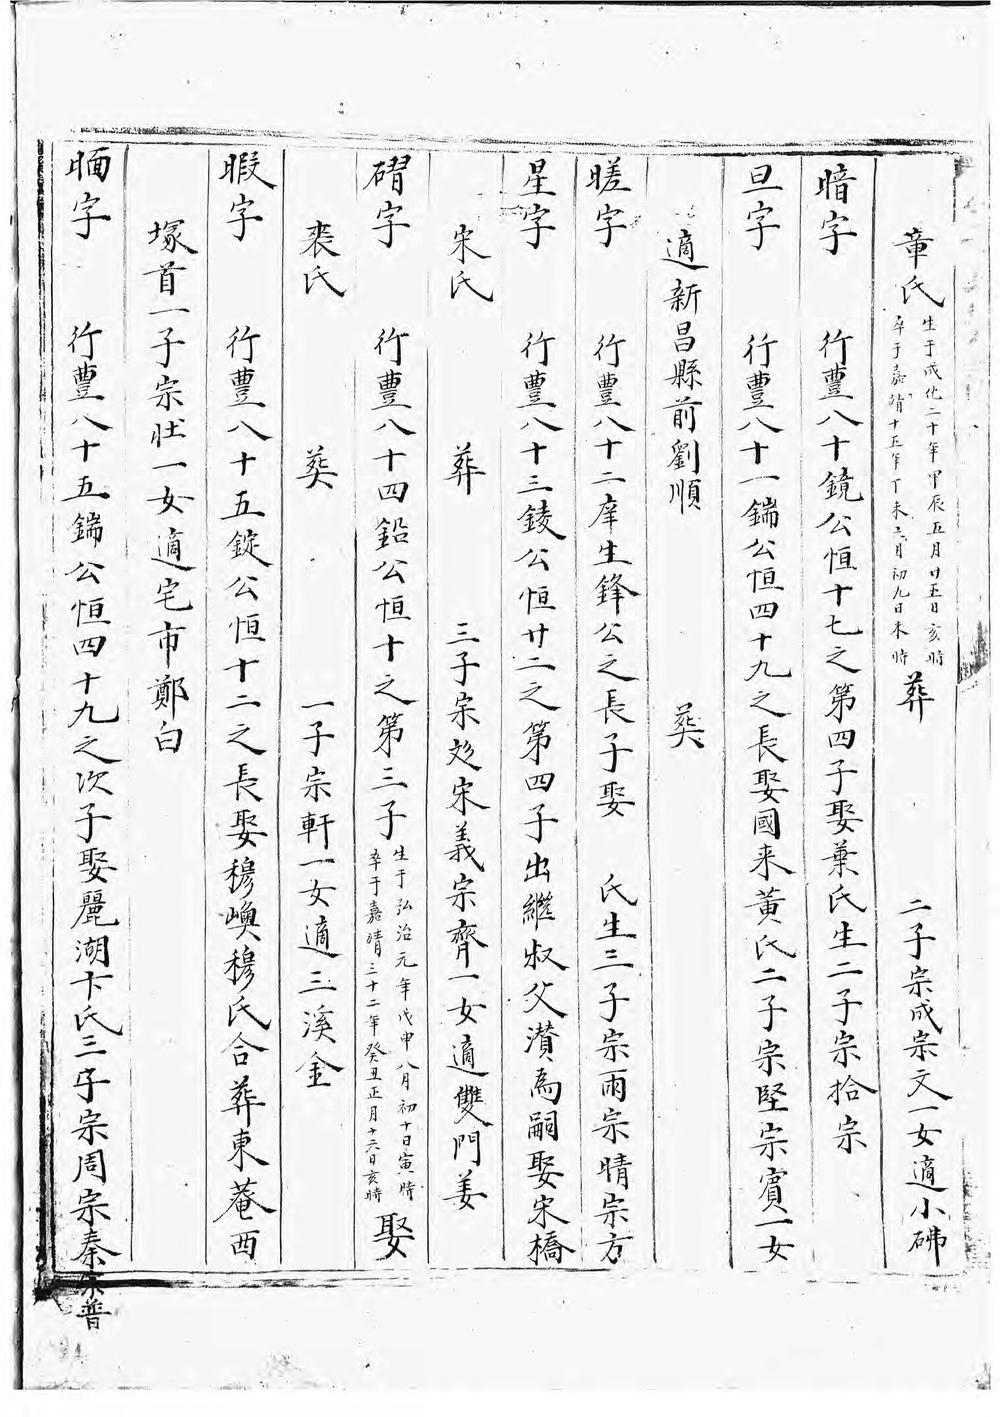 章氏 生于成化二十年甲辰五月廿五日亥時 卒于嘉靖十五年丁未六月初九日未時 葬 二子宗成宗文一女適小砩
暗字 行豊八十鏡公恒十七之第四子娶葉氏生二子宗拾宗
旦字 行豊八十一鍴公恒四十九之長娶國来黃氏二子宗堅宗賓一女
適新昌縣前劉順 葬
暛字 行豊八十二庠生鋒公之長子娶 氏生三子宗雨宗晴宗方
星字 行豊八十三錂公恒廿二之第四子出繼叔父濽為嗣娶宋橋
宋氏 葬 三子宗 宋義宗齊一女適雙門姜
碏字 行豊八十四鉛公恒十之第三子 生于弘治元年戊申八月初十日寅時 卒于嘉靖三十二年癸丑正月十六日亥時 娶
裘氏 葬 一子宗軒一女適三溪金
暇字 行豊八十五錠公恒十二之長娶穆嶼穆氏合葬東菴西
塚首一子宗壯一女適宅市鄭白
㫾字 行豊八十五鍴公恒四十九之次子娶麗湖卞氏三子宗周宗秦宗普